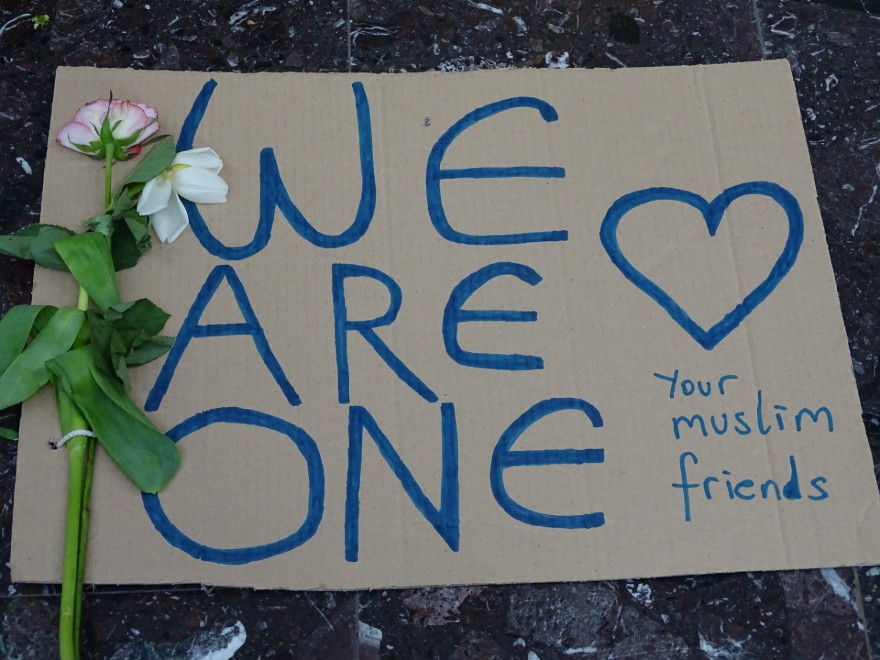 WE
ARE
ONE
Your
muslim
friends